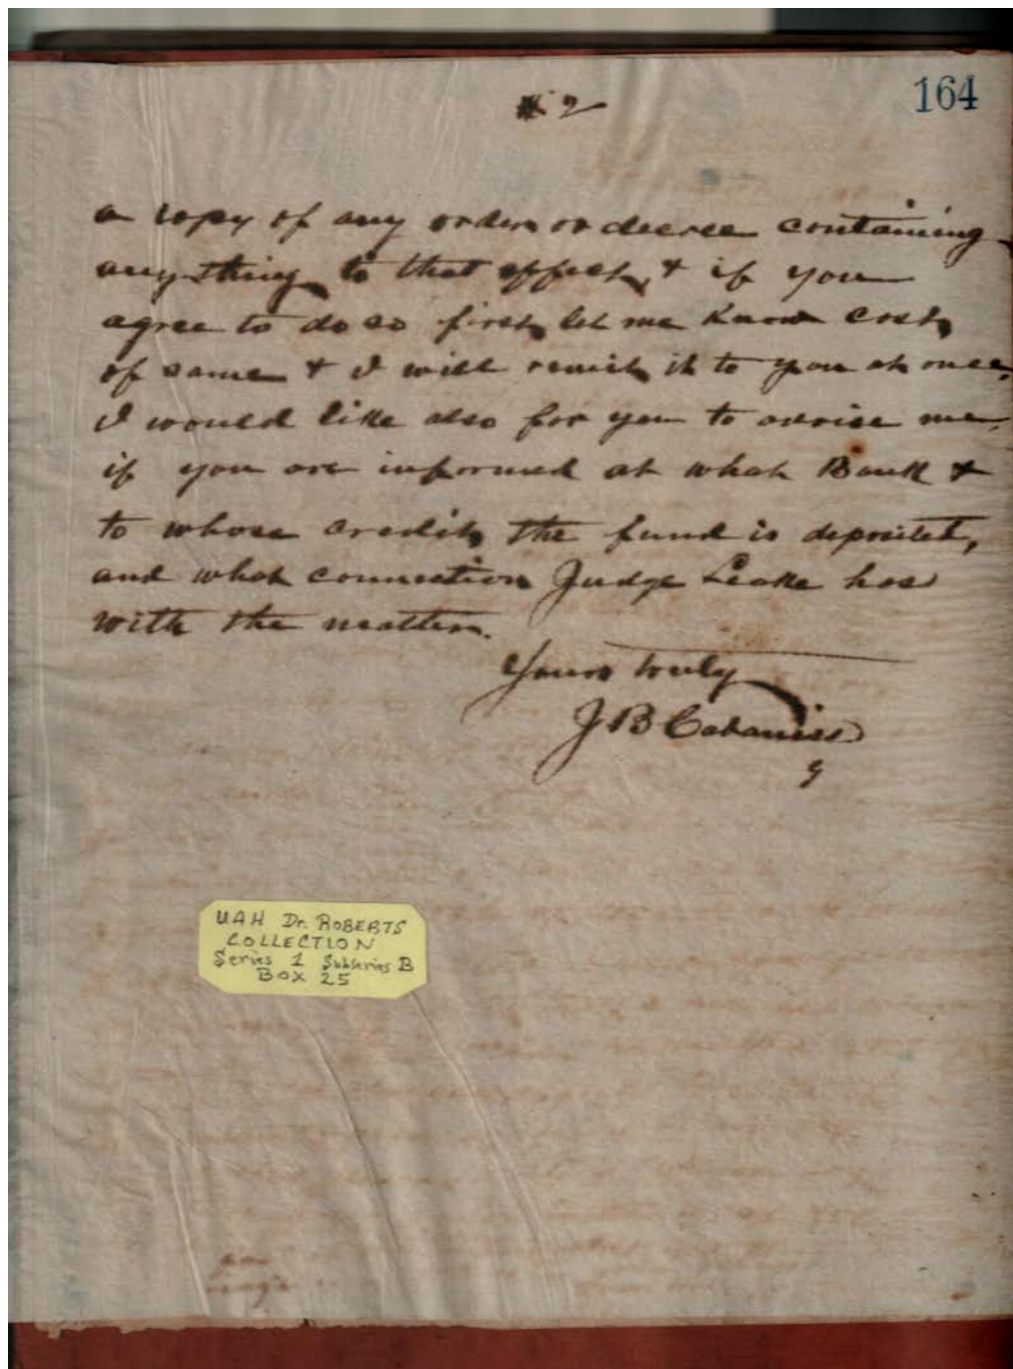 164
2
a copy of any order or decree containing
any thing to that effect, & if you
agree to do so first let me know cost
of same & I will remit it to you at once.
I would like also for you to advise me,
if you are informed at what Bank &
to whose credit the fund is deposited,
and what connection Judge Leake has
with the matter.
Yours truly
J B Cabaniss
UAH Dr. ROBERTS
COLLECTION
Series 1 Subseries B
BOX 25